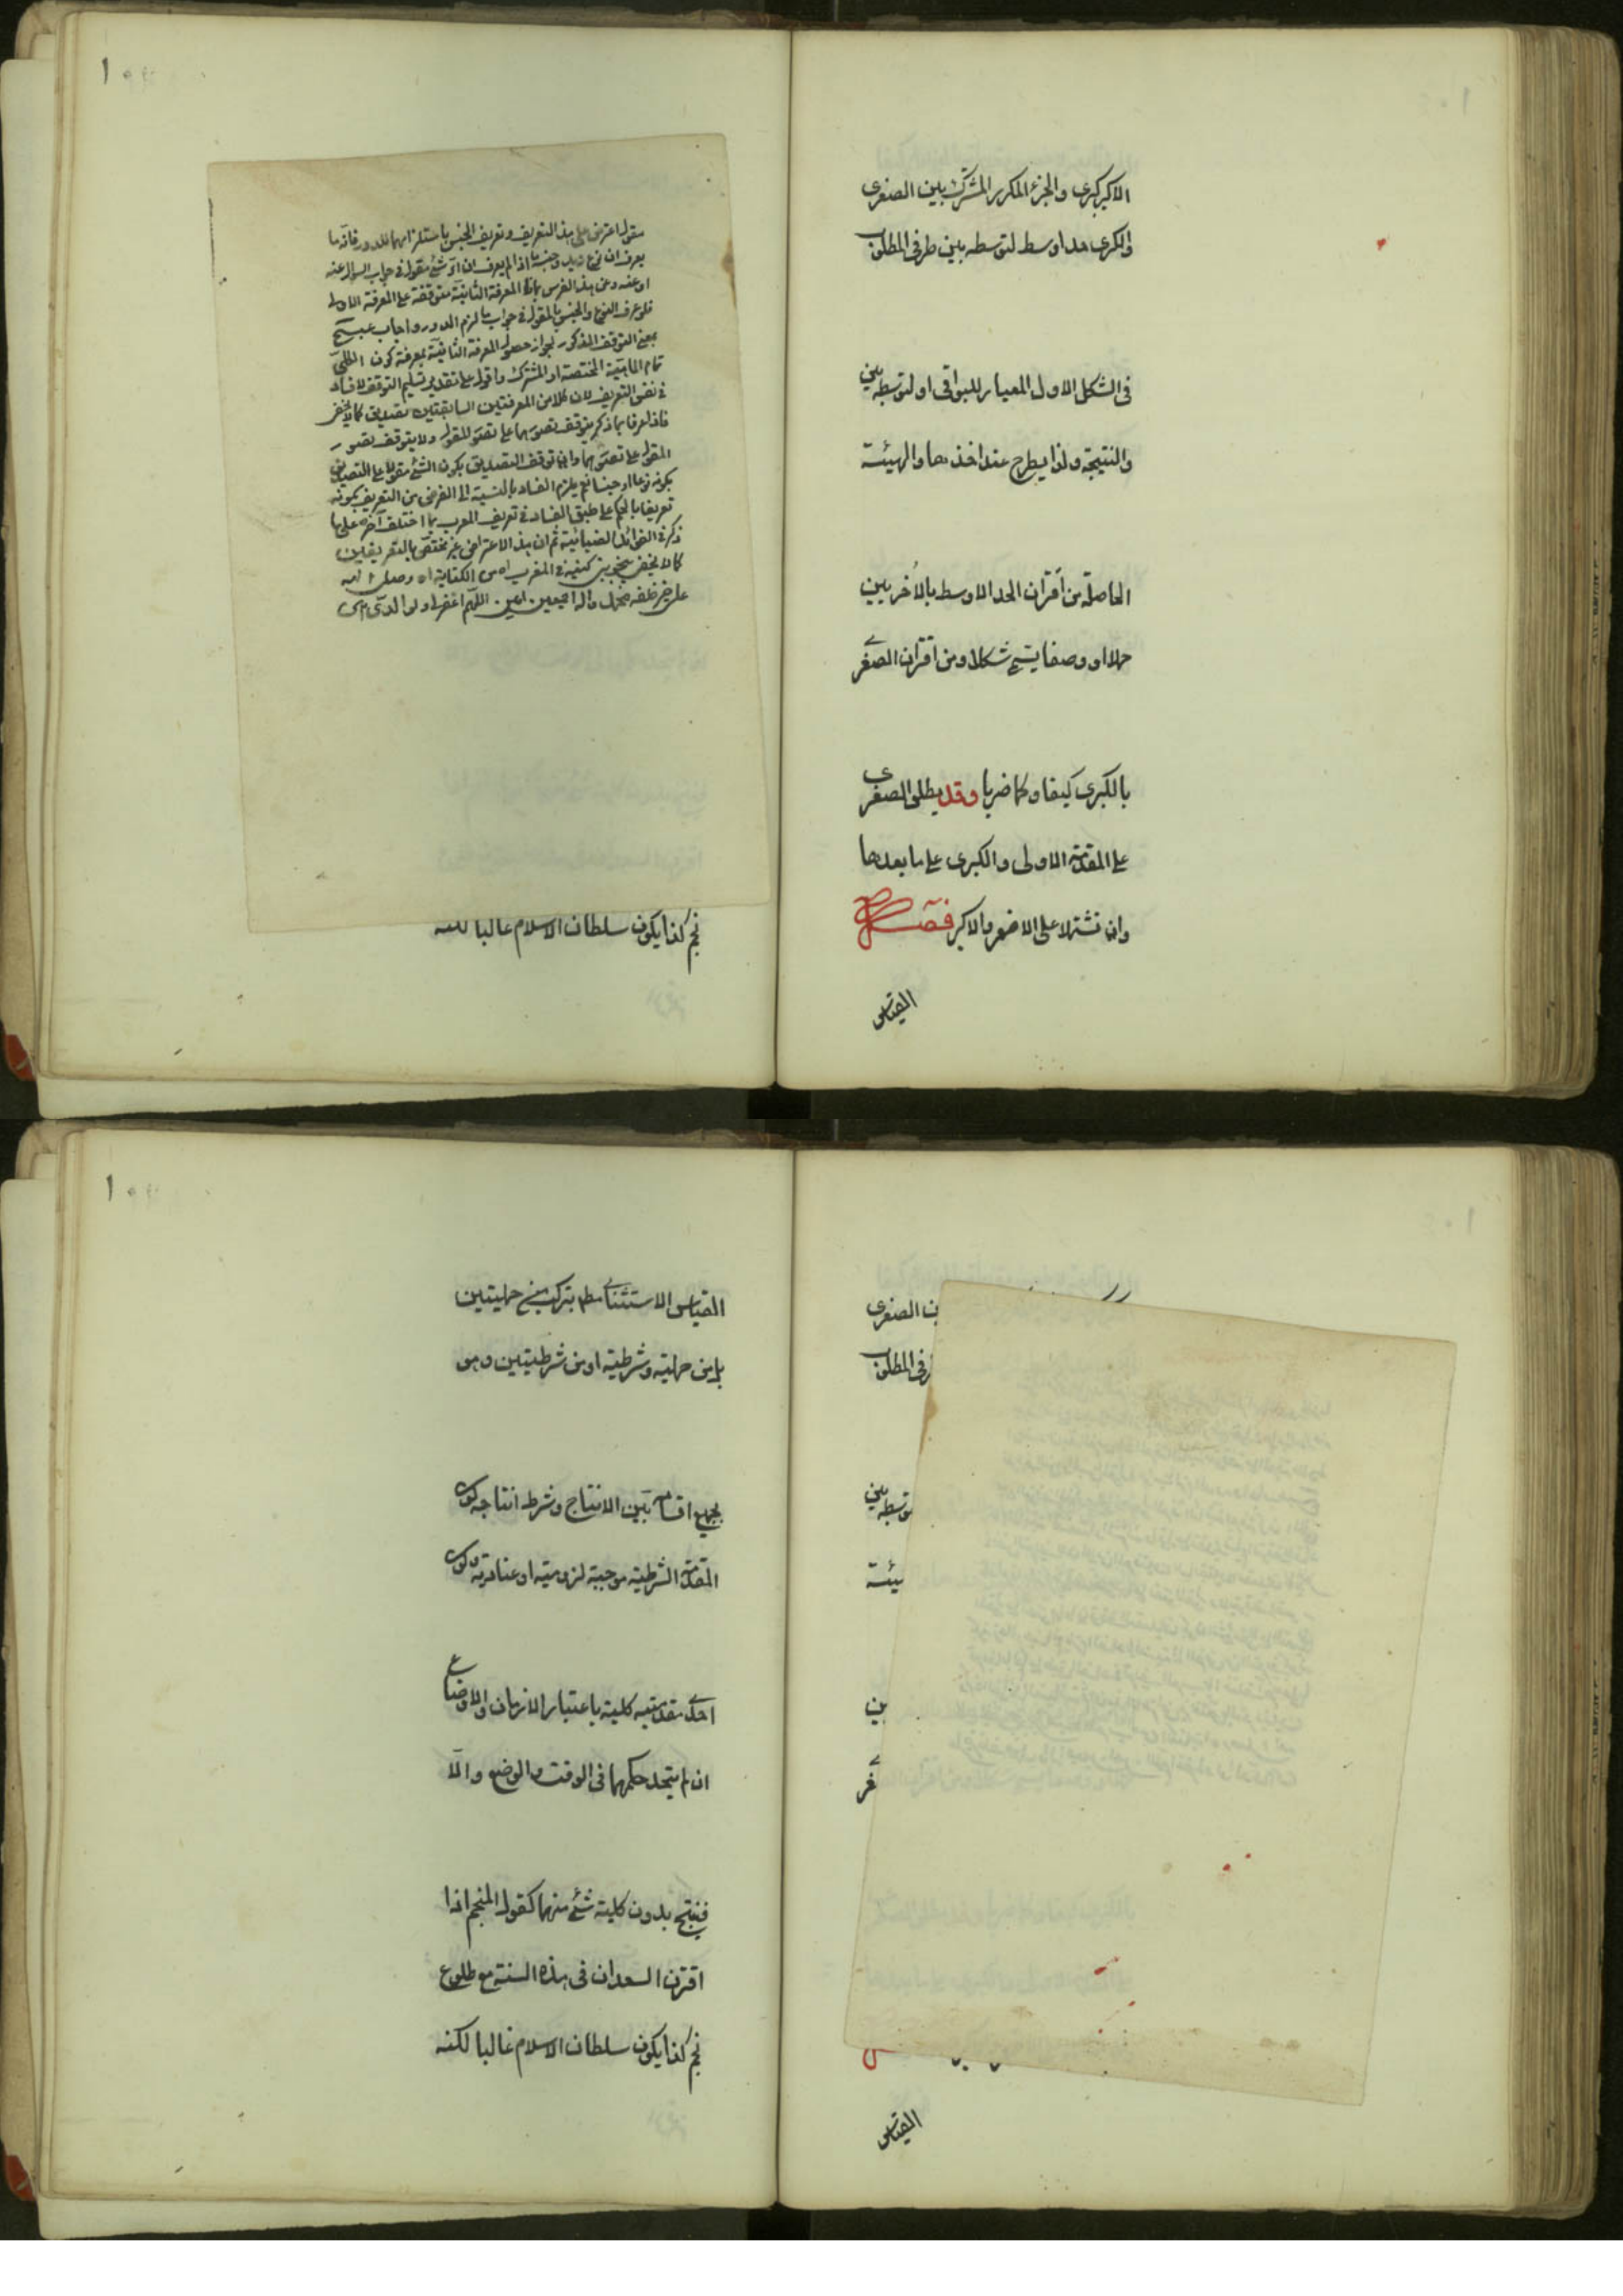 الاكبر كبرى والجزء المكرر المشترك بين الصغرى
والكبرى حدا اوسط لتوسطه بين طرفى المطلوب
فى الشكل الاول المعيار للبواقى او لتوسطه بين
والنتيجة ولذا يطرح عند اخذها والهيئة
الحاصلة من اقتران الحد الاوسط بالاخريين
حملا او وصفا يسمى شكلا ومن اقتران الصغرى
بالكبرى كيفا وكما ضربا وقد يطلق الصغرى
على المقدمة الاولى والكبرى على ما بعدها
وان تشتملا على الاصغر والاكبر فصل
القياس
مقول اعترض على هذا التعريف وتعريف الجنس باستلزامهما للدور فانه ما
يعرف ان نوع زيد وجنسه ما اذا لم يعرف ان اى شئ مقول فى جواب السؤال عنه
او عنه وعن هذا الفرس فان المعرفة الثانية متوقفة على المعرفة الاولى
فلو عرف النوع والجنس بالمقول فى جواب ما لزم الدور واجاب
بمنع التوقف المذكور لجواز حصول المعرفة الثانية بمعرفة كون الكلى
تمام الماهية المختصة او المشتركة واقول على تقدير تسليم التوقف لا فساد
فى نفس التعريف لان كلا من المعرفتين السابقتين تصديق كما لا يخفى
فاذا عرفا بما ذكر يتوقف تصورهما على تصور المقول ولا يتوقف تصور
المقول على تصورهما وان توقف التصديق بكون الشئ مقولا على التصديق
بكونه نوعا او جنسا نعم يلزم الفساد بالنسبة الى الغرض من التعريف بكونه
تعريفا بالحكم على طبق الفساد فى تعريف المعرب بما اختلف آخره على ما
ذكر فى الفوائد الضيائية ثم ان هذا الاعتراض غير مختص بالتعريفين
كما لا يخفى
على خير خلقه محمد واله اجمعين امين اللهم اغفر لى ولوالدى
نجم كذا يكون سلطان الاسلام غالبا لكنه
ين الصغرى
رفى المطلوب
توسطه بين
يئة
ين
غرى
القياس
القياس الاستثنائى مطلقا يتركب من حمليتين
بل من حملية وشرطية او من شرطيتين وهو
بجميع اقسامه بين الانتاج وشرط انتاجه كون
المقدمة الشرطية موجبة لزومية او عنادية وكون
احدى مقدمتيه كلية باعتبار الازمان والاوضاع
ان لم يتحد حكمهما فى الوقت والوضع والا
فينتج بدون كلية شئ منهما كقول المنجم اذا
اقترن السعدان فى هذه السنة مع طلوع
نجم كذا يكون سلطان الاسلام غالبا لكنه